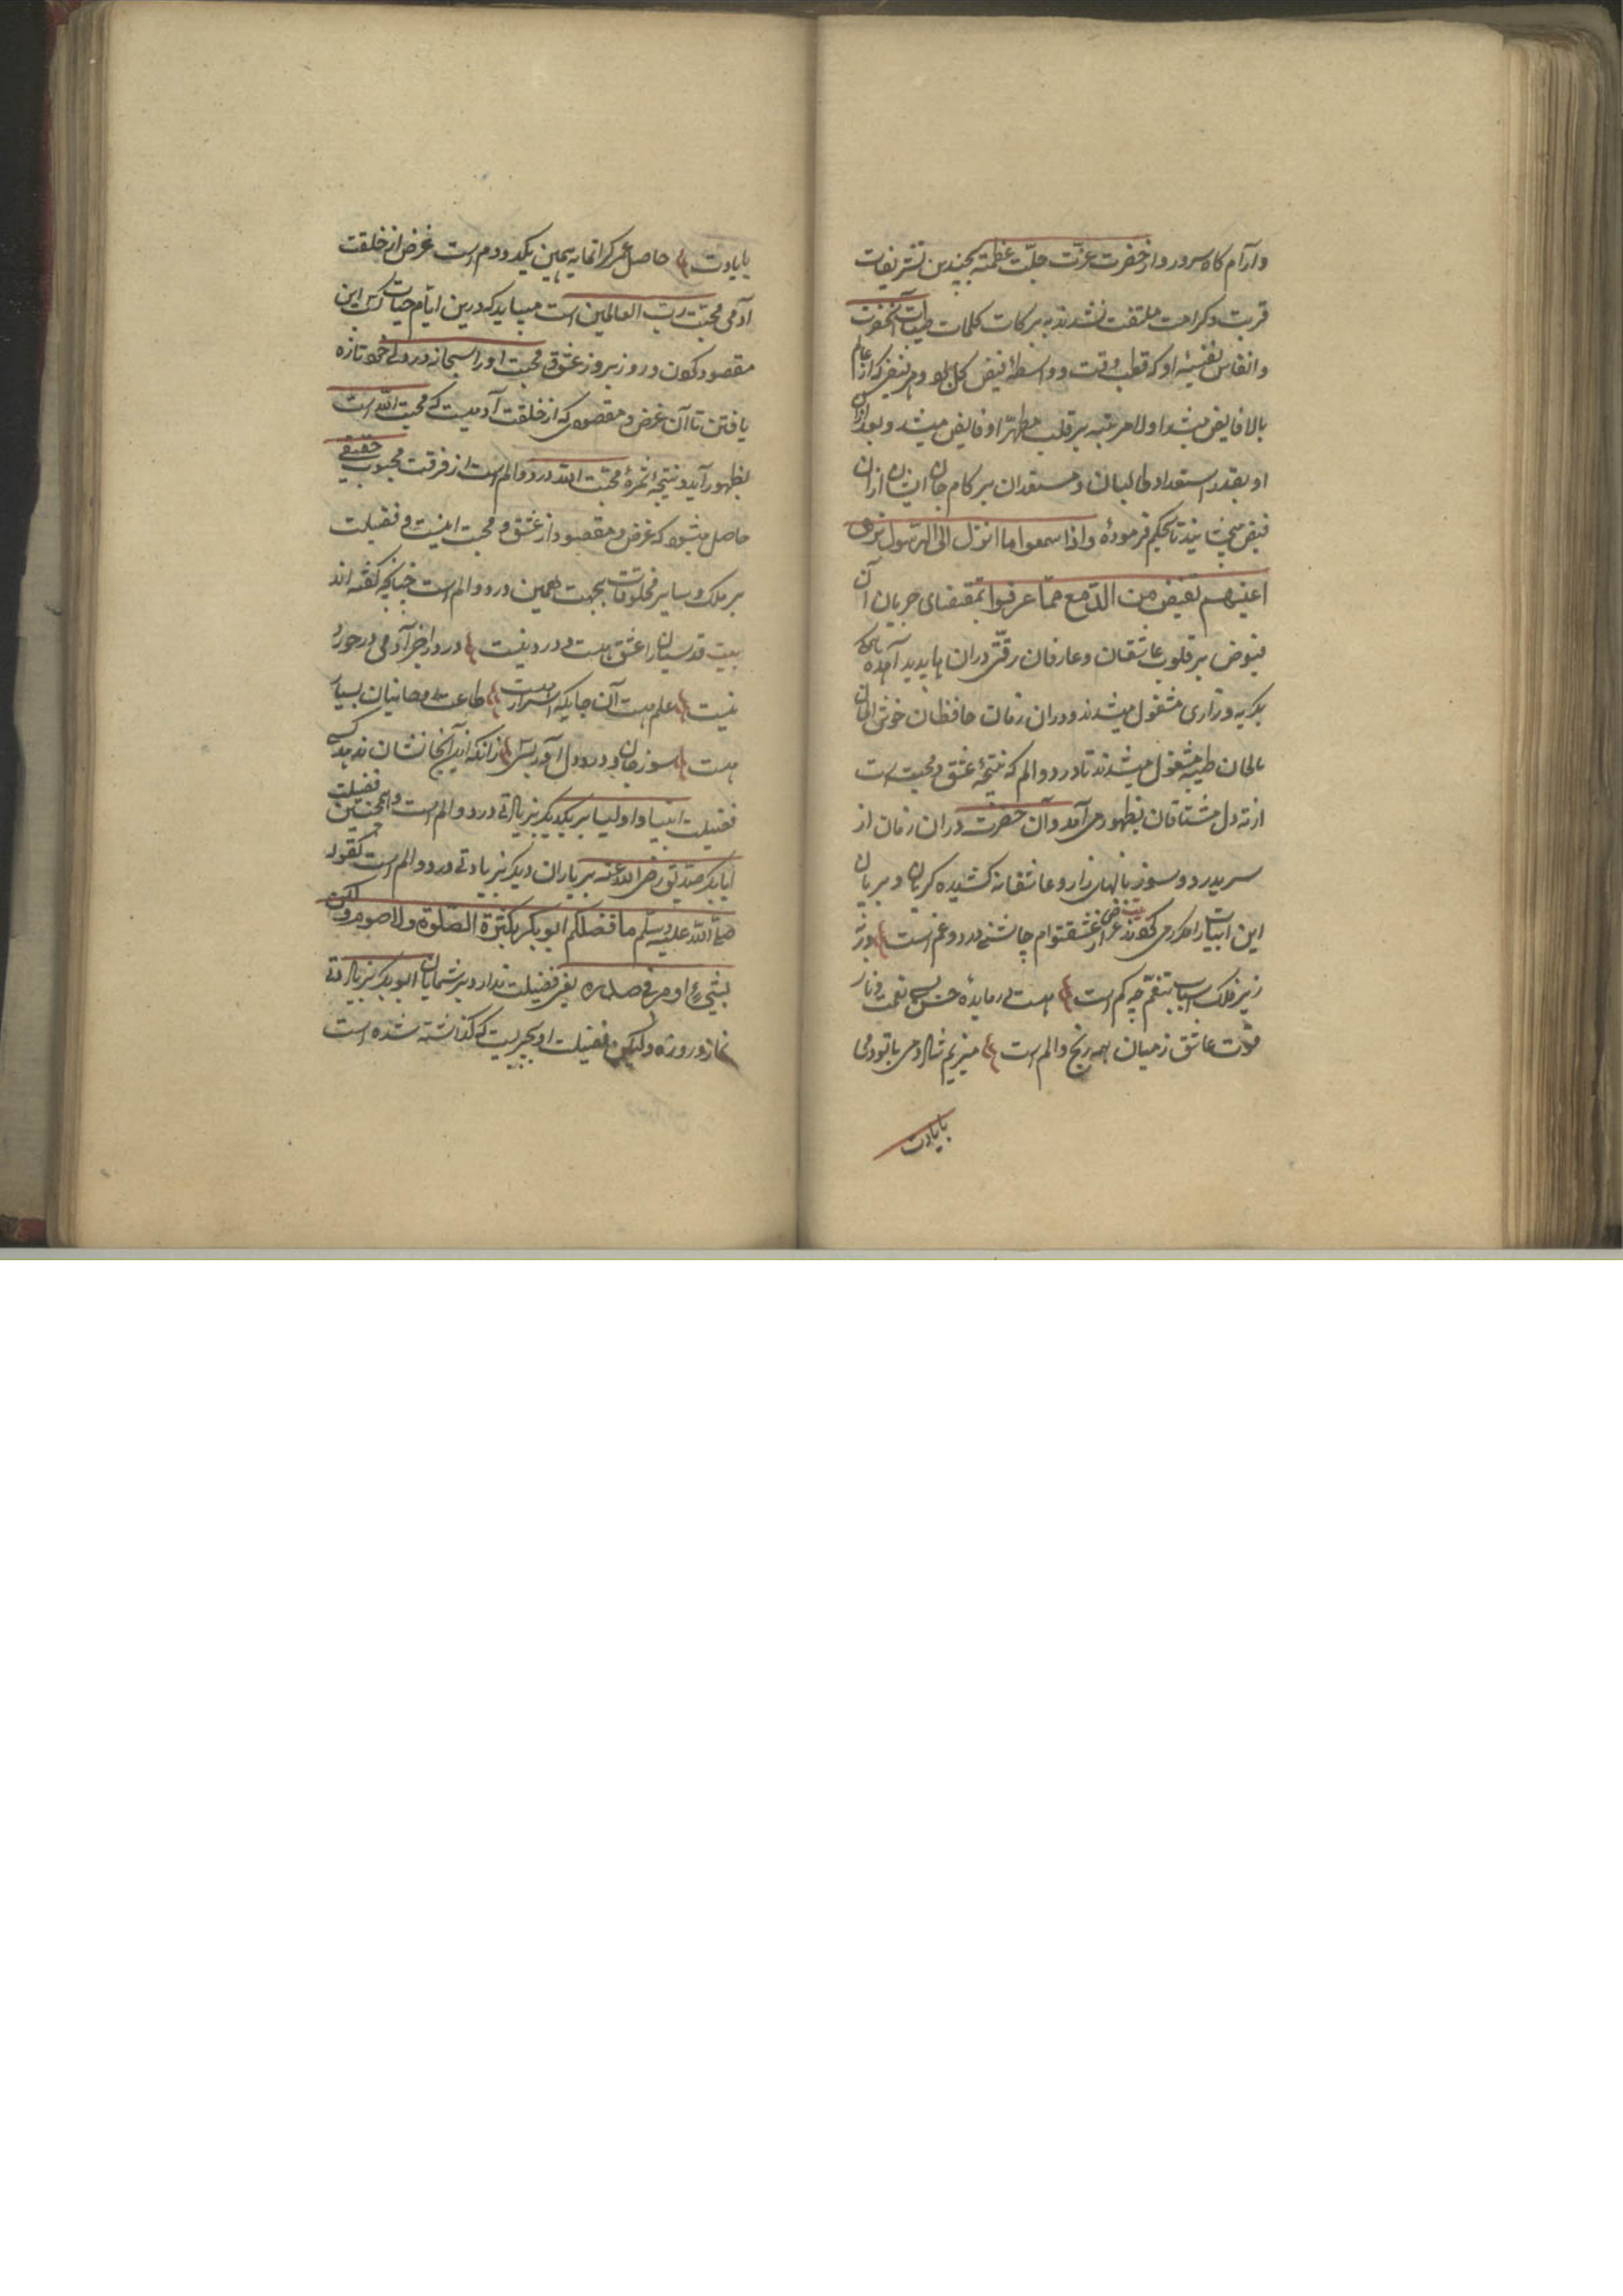 وآرام کاه سرور واز حضرت عزت جلّت عظمته بچندین تشریفات
قربت وکرامت ملتفت نشدند به برکات کلمات طیبات آنحضرت
وانفاس نفیسهٔ او که قطب وقت وواسطهٔ فیض کل بود وهر فیض که از عالم
بالا فایض میشد اول مرتبه بر قلب مطهر او فایض میشد وبعد ازان
او بقدر استعداد طالبان ومستعدان بر کام جان ایشان ازان
فیض میچشانیدند تا بحکم فرمودهٔ واذا سمعوا ما انزل الی الرسول تری
اعینهم تفیض من الدّمع ممّا عرفوا بمقتضای جریان آن
فیوض بر قلوب عاشقان وعارفان رقّتی دران پدید آمده
بکریه وزاری مشغول میشدند ودران زمان حافظان خوش الحان
بالحان طیبه مشغول میشدند تا درد والم که نتیجهٔ عشق ومحبت است
از ته دل مشتاقان بظهور می آمد وآن حضرت دران زمان از
سر درد وسوز بانهای زار وعاشقانه کشیده کریان وبریان
این ابیات را مکرر می کفتند بیت غرض از عشق توام چاشنی درد وغم است ورنه
زیر فلک اسباب تنعّم چه کم است هست در مایدهٔ حسن بسی نعمت وناز
قوت عاشق زمیان همه رنج والم است میزیم شاد دمی با تو دمی
با یادت
با یادت حاصل عمر کرانمایه همین یکدو دم است غرض از خلقت
آدمی محبّت ربّ العالمین است میباید که درین ایّام حیات کس این
مقصود کون در روز بروز عشق ومحبت او را سبحانه در دل خود تازه
یافتن تا آن غرض ومقصودی که از خلقت آدمیست که محبت الله است
بظهور آید ونتیجه وثمرهٔ محبّت الله درد والم است از فرقت محبوب حقیقی
حاصل میشود که غرض ومقصود از عشق ومحبت اینست وفضیلت
بر ملک وسایر مخلوقات بجهت همین درد والم است چنانچه کفته اند
بیت قدسیان را عشق هست ودرد نیست درد را جز آدمی در خورد
نیست علم هست آن جایکه اسرار هست طاعت روحانیان بسیار
هست سوز جان ودرد دل آور بسی زانکه اینرا آنجا نشان ندهد کسی
فضیلت انبیا واولیا بر یکدیکر بزیادتی درد والم است وهمچنین فضیلت
ابابکر صدیق رضی الله عنه بر یاران دیکر بزیادتی درد والم است کقوله
صلّی الله علیه وسلّم ما فضلکم ابوبکر بکثرة الصّلوة ولا صوم ولکن
بشیء وقر فی صدره یعنی فضیلت ندارد بر شمایان ابوبکر بزیادتی
نماز وروزه ولیکن فضیلت او بچیزیست که کذاشته شده است